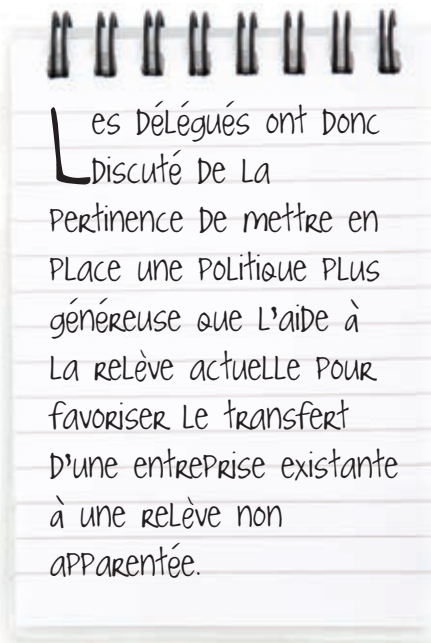 Les délégués ont donc
discuté de la
pertinence de mettre en
place une politique plus
généreuse que l'aide à
la relève actuelle pour
favoriser le transfert
d'une entreprise existante
à une relève non
apparentée.